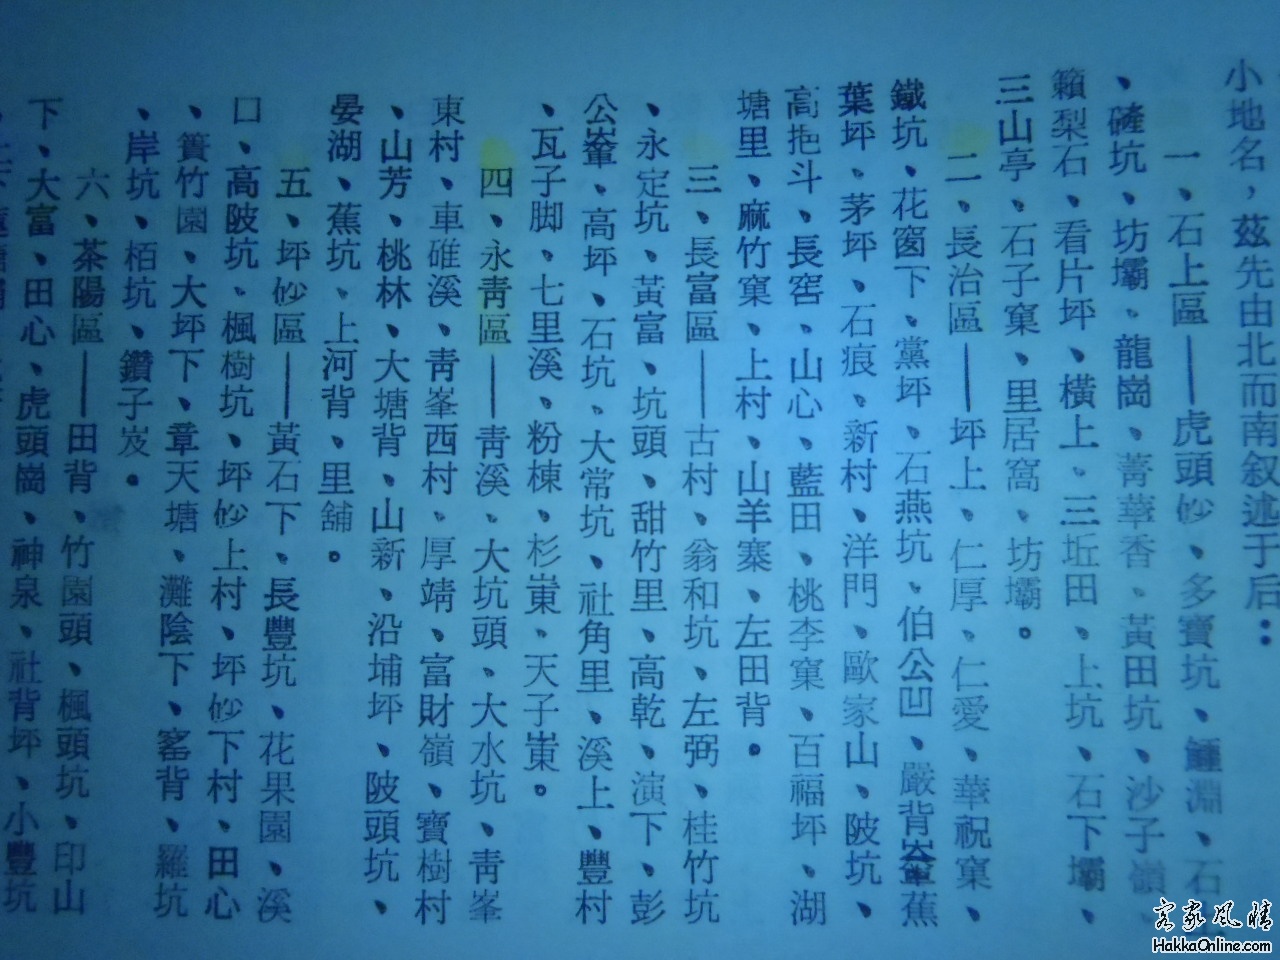 小地名，茲先由北而南叙述于后：
一、石上區——虎頭𡵆、多寶坑、鱷淵、石
、䃰坑、坊壩、龍崗、菁華香、黃田坑、沙子嶺、
籟梨石、看片坪、橫上、三坵田、上坑、石下壩、
三山亭、石子窠、里居窩、坊壩。
二、長治區——坪上、仁厚、仁愛、華祝窠、
鐵坑、花窗下、黨坪、石燕坑、伯公凹、嚴背崟蕉
葉坪、茅坪、石痕、新村、洋門、歐家山、陂坑、
高抱斗、長窖、山心、藍田、桃李窠、百福坪、湖
塘里、麻竹窠、上村、山羊寨、左田背。
三、長富區——古村、翁和坑、左弼、桂竹坑
、永定坑、黃富、坑頭、甜竹里、高乾、演下、彭
公崟、高坪、石坑、大常坑、社角里、溪上、豐村
、瓦子脚、七里溪、粉棟、杉崬、天子崬。
四、永靑區——靑溪、大坑頭、大水坑、靑峯
東村、車碓溪、靑峯西村、厚靖、富財嶺、寶樹村
、山芳、桃林、大塘背、山新、沿埔坪、陂頭坑、
晏湖、蕉坑、上河背、里舖。
五、坪𡵆區——黃石下、長豐坑、花果園、溪
口、高陂坑、楓樹坑、坪𡵆上村、坪𡵆下村、田心
、簣竹園、大坪下、章天塘、灘陰下、窰背、羅坑
、岸坑、栢坑、鑽子岌。
六、茶陽區——田背、竹園頭、楓頭坑、印山
下、大富、田心、虎頭崗、神泉、社背坪、小豐坑
客家風情
HakkaOnline.com